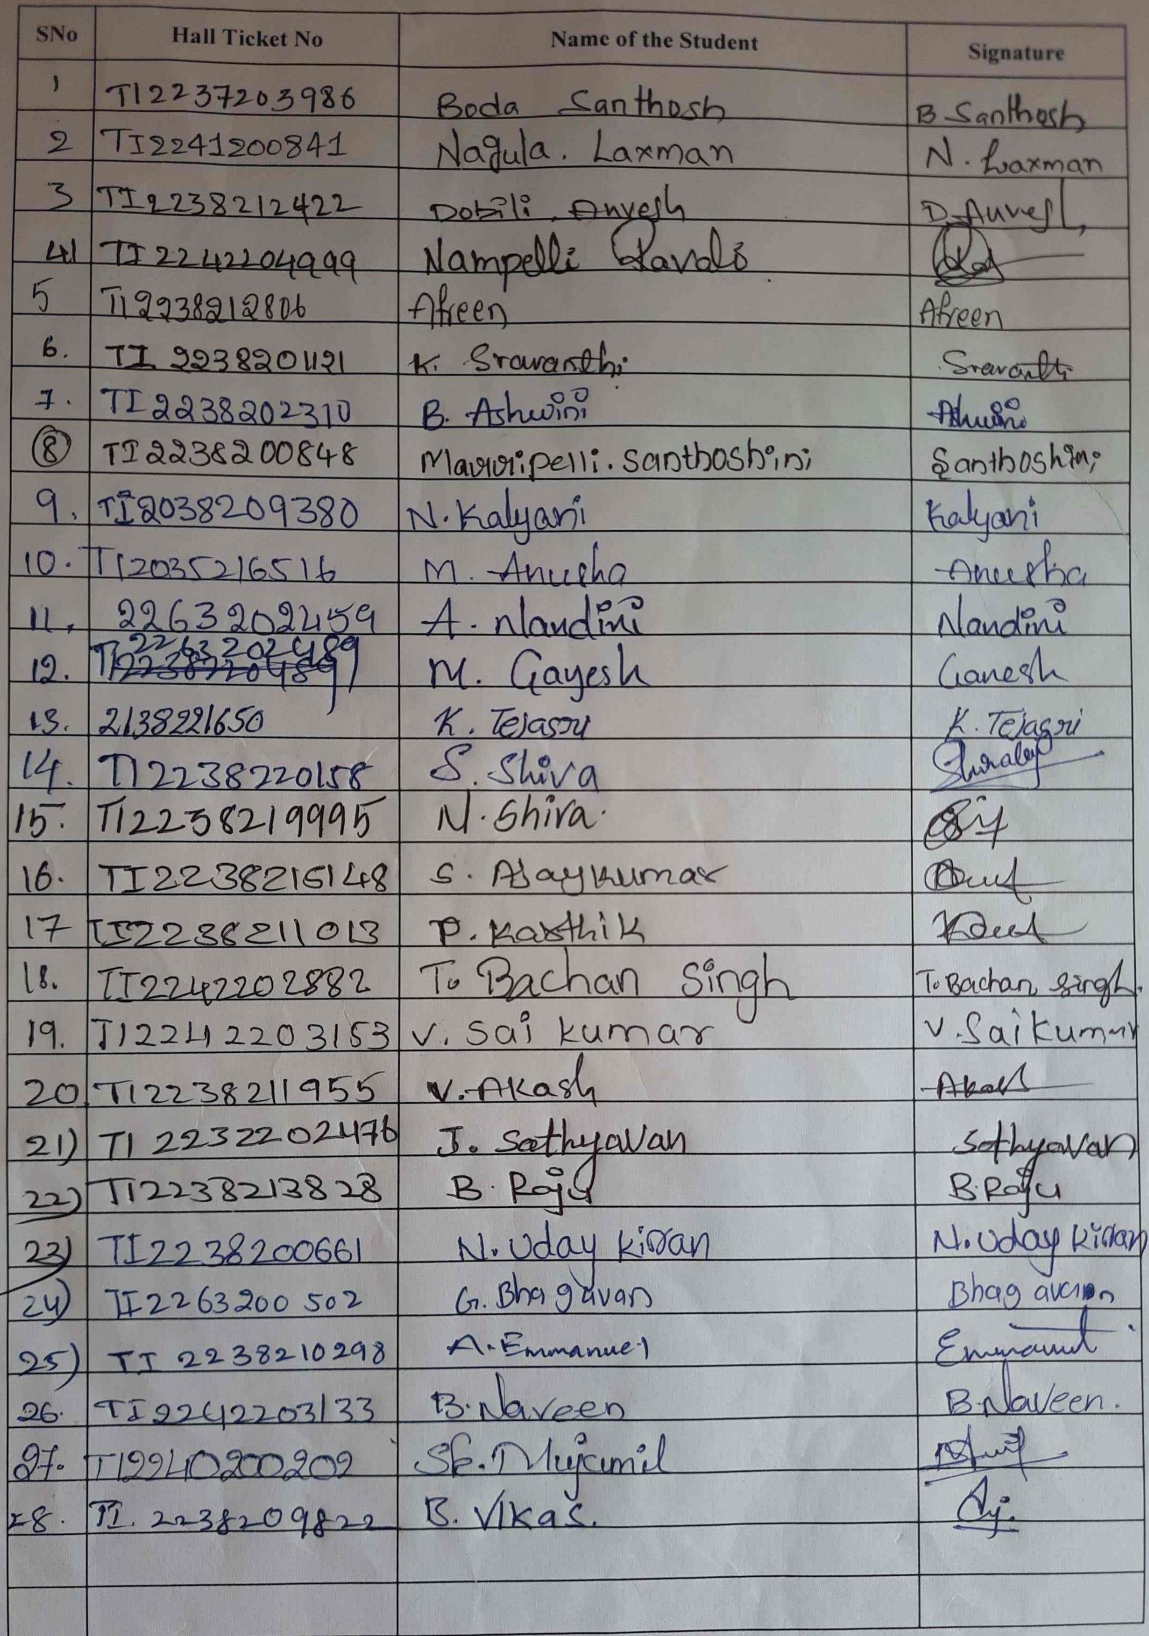 SNo Hall Ticket No Name of the Student Signature
1 TI2237203986 Boda Santhosh B. Santhosh
2 TI2241200841 Nagula. Laxman N. Laxman
3 TI2238212422 Dobili. Anvesh D. Anvesh
4) TI2242204999 Nampelli Ravali
5 TI2238212806 Afreen Afreen
6. TI 2238201121 K. Sravanthi Sravanthi
7. TI2238202310 B. Ashwini Ashwini
8 TI2238200848 Mavuripelli. Santhoshini Santhoshini
9. TI2038209380 N. Kalyani Kalyani
10. TI2035216516 M. Anusha Anusha
11. 2263202459 A. Nandini Nandini
12. 2263202489 M. Gayesh Ganesh
13. 2138221650 K. Tejasri K. Tejasri
14. TI2238220158 S. Shiva
15. TI2238219995 N. Shiva.
16. TI2238215148 S. Ajaykumar
17 TI2238211013 P. Karthik
18. TI2242202882 T. Bachan Singh T. Bachan Singh.
19. TI22412203153 V. Sai kumar V. Sai Kumar
20 TI2238211955 V. Akash Akash
21) TI 22322202476 J. Sathyavan Sathyavan
22) TI2238213828 B. Raju B. Raju
23) TI2238200661 N. Uday Kiran N. Uday Kiran
24) TI2263200502 G. Bhagavan Bhagavan
25) TI 2238210298 A. Emmanuel Emmanuel
26. TI2242203133 B. Naveen B. Naveen.
27. TI2240200202 Sk. Mujamil
28. TI. 2238209822 B. Vikas.